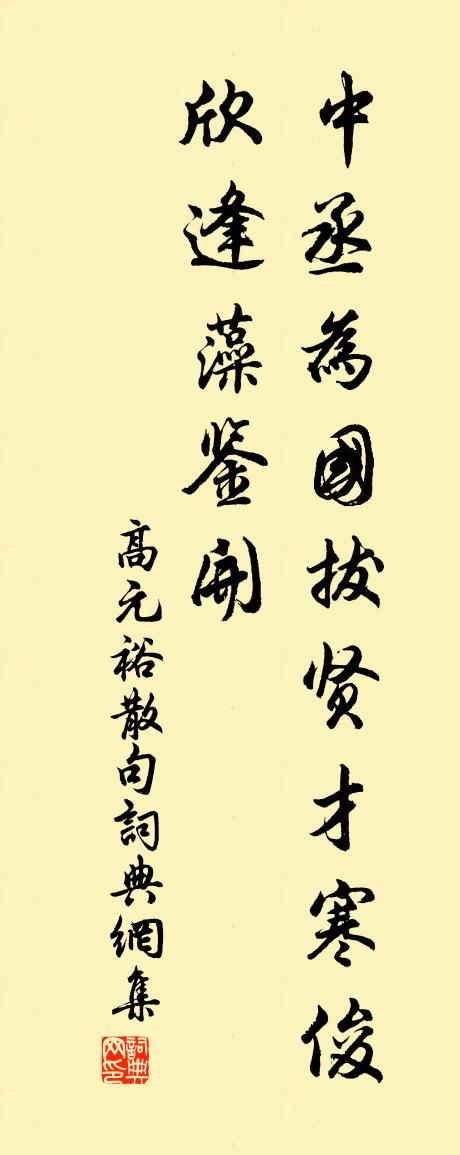 中丞為國拔贤才寒俊
欣逢藻鉴開
高元裕散句詞典網集
詞典網印